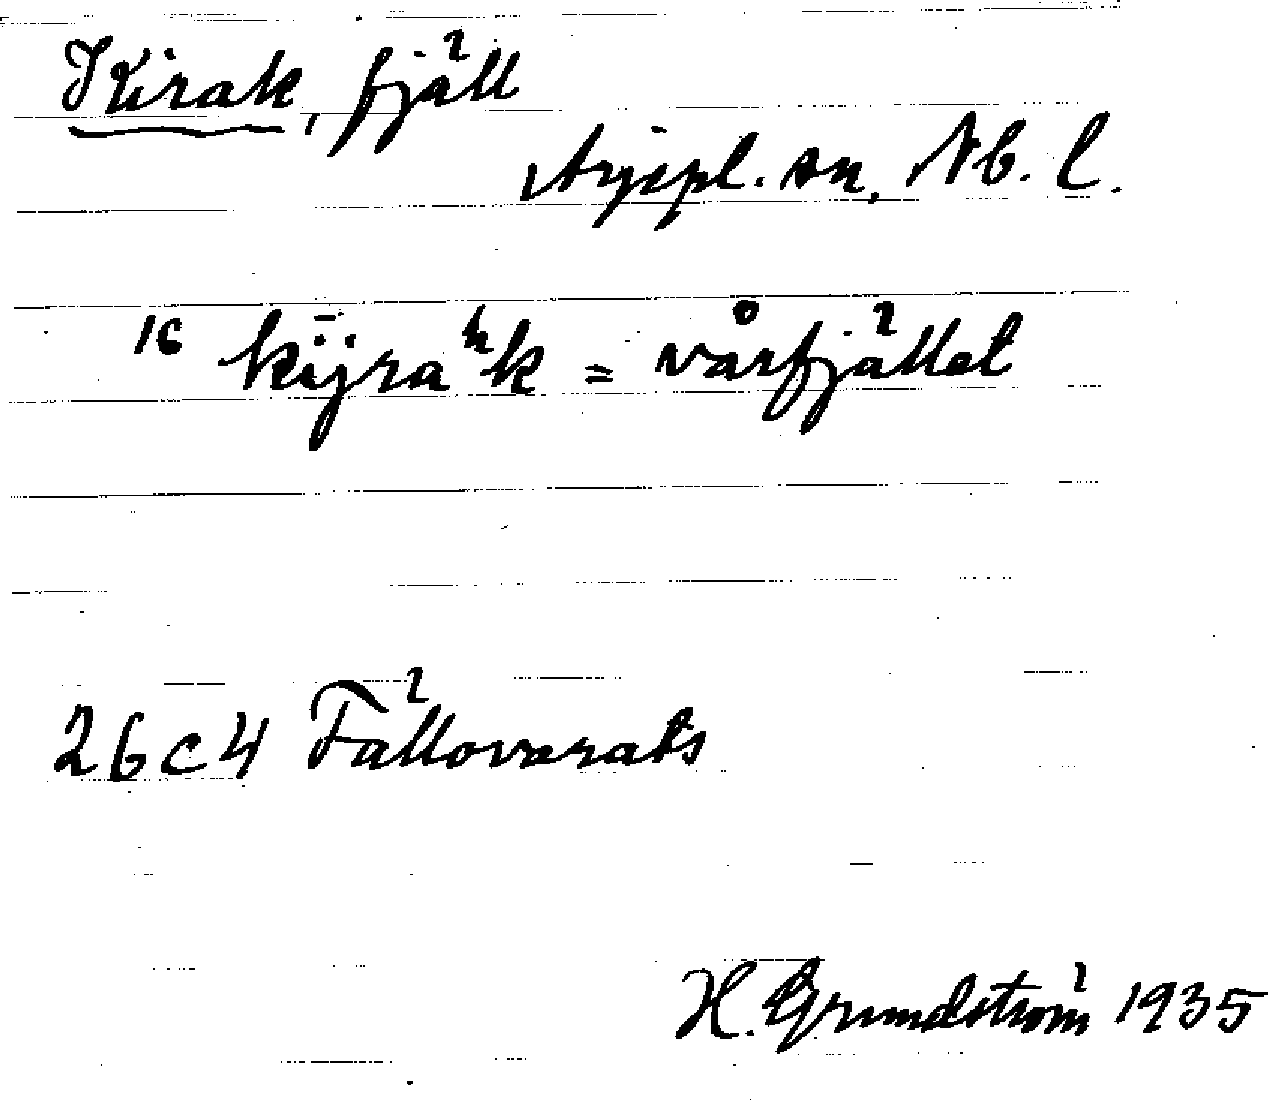 Kirak, fjäll
Arjepl. sn, Nb. l.
16 kījraʰk = vårfjället
26c4 Fälloverats
H. Grundström 1935